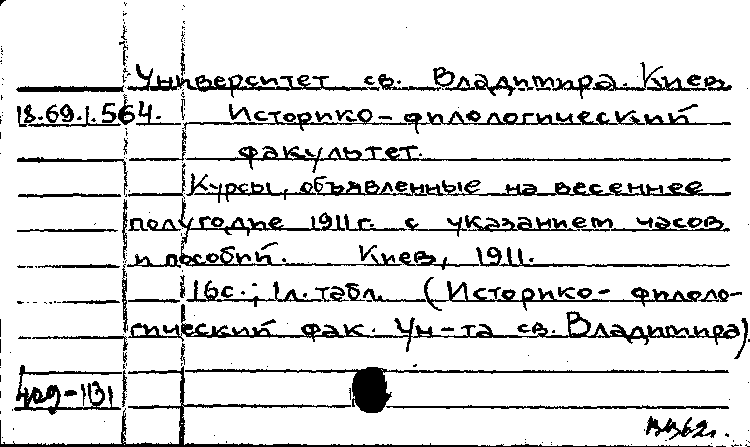 Университет св. Владимира. Киев
18.69.1.564. Историко-филологический
факультет.
Курсы, объявленные на весеннее
полугодие 1911 г. с указанием часов
и пособий. Киев, 1911.
16с.; 1л. табл. (Историко-филоло-
гический фак. Ун-та св. Владимира)